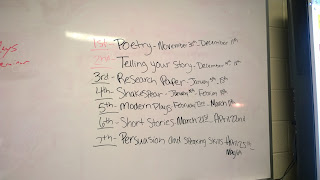 1st - Poetry - November 30th - December 11th
2nd - Telling your Story - December
3rd - Research Paper - January
4th - Shakespear - January - February
5th - Modern Plays - February - March
6th - Short Stories - March 21st - April 22nd
7th - Persuasion and Speaking Skills April 25th -
May